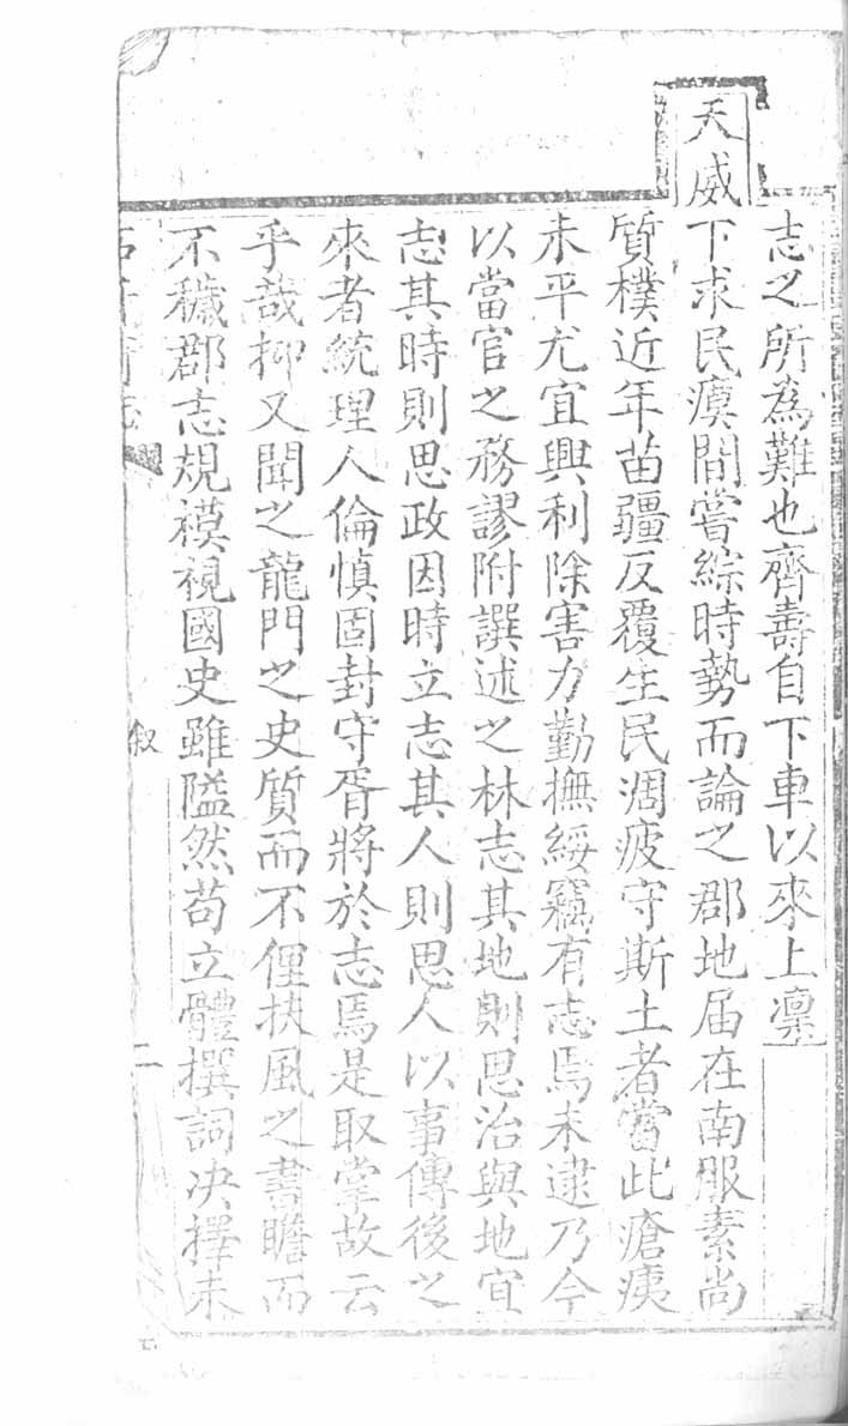 志之所為難也齊壽自下車以來上凛
天威下求民瘼間嘗綜時勢而論之郡地届在南服素尚
質樸近年苗疆反覆生民凋疲守斯土者當此瘡痍
未平尤宜興利除害力勤撫綏竊有志焉未逮乃今
以當官之務謬附譔述之林志其地則思治與地宜
志其時則思政因時立志其人則思人以事傳後之
來者統理人倫慎固封守胥將於志焉是取掌故云
乎哉抑又聞之龍門之史質而不俚扶風之書瞻而
不穢郡志規模視國史雖隘然苟立體撰詞決擇未
叙
二